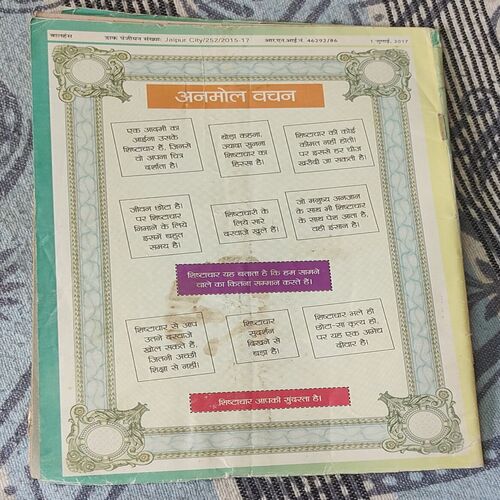 बालहंस डाक पंजीयन संख्या: Jaipur City/252/2015-17 आर.एन.आई.नं. 46393/86 1 जुलाई, 2017
अनमोल वचन
एक आदमी का
आईना उसके
शिष्टाचार हैं, जिनसे
वो अपना चित्र
दर्शाता है।
थोड़ा कहना,
ज्यादा सुनना
शिष्टाचार का
हिस्सा है।
शिष्टाचार की कोई
कीमत नहीं होती।
पर इससे हर चीज
खरीदी जा सकती है।
जीवन छोटा है।
पर शिष्टाचार
निभाने के लिये
इसमें बहुत
समय है।
शिष्टाचारी के
लिये सारे
दरवाजे खुले हैं।
जो मनुष्य अनजान
के साथ भी शिष्टाचार
के साथ पेश आता है,
वही इंसान है।
शिष्टाचार यह बताता है कि हम सामने
वाले का कितना सम्मान करते हैं।
शिष्टाचार से आप
उतने दरवाजे
खोल सकते हैं,
जितनी अच्छी
शिक्षा से नहीं।
शिष्टाचार
सुदर्शन
दिखने से
बड़ा है।
शिष्टाचार भले ही
छोटा-सा कृत्य हो,
पर यह एक अभेद्य
दीवार है।
शिष्टाचार आपकी सुंदरता है।